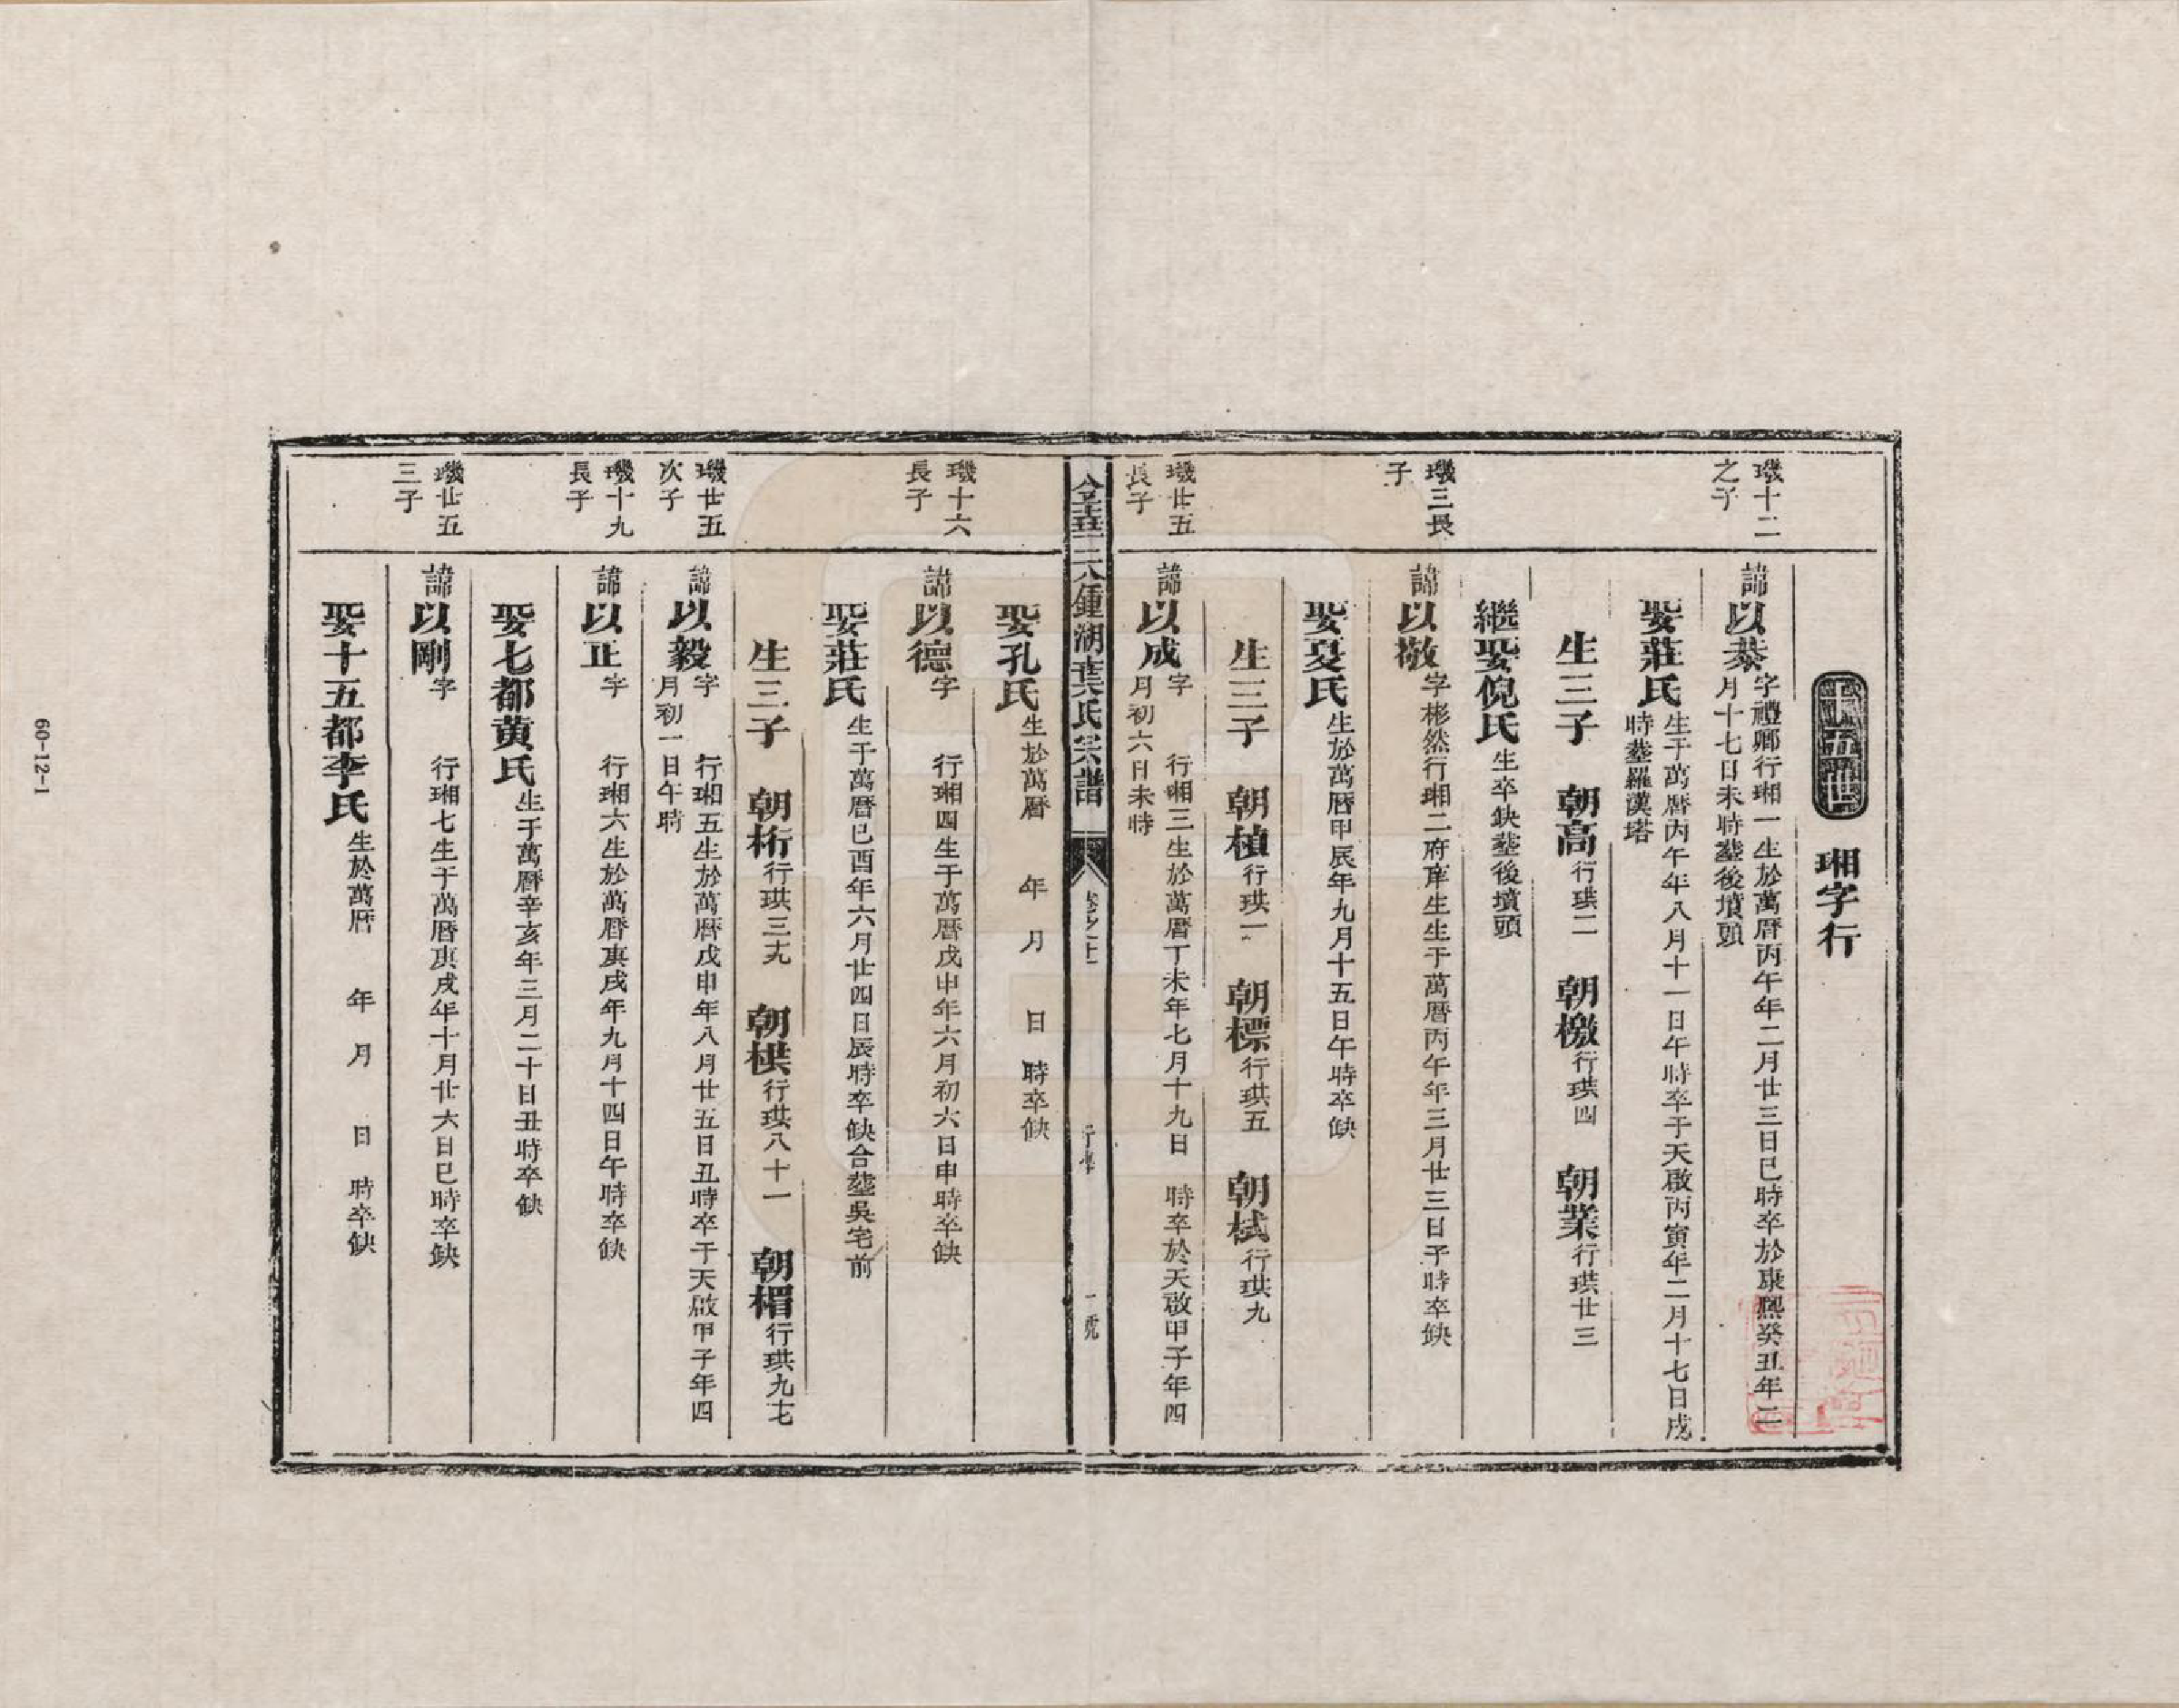 十五世 瑂字行
璣十二
之子
諱以恭字禮卿行瑂一生於萬曆丙午年二月廿三日巳時卒於康熙癸丑年二
月十七日未時塟後墳頭
娶莊氏生于萬曆丙午年八月十一日午時卒于天啟丙寅年二月十七日戌
時塟羅漢塔
生三子 朝高行珙二 朝檄行珙四 朝業行珙廿三
繼娶倪氏生卒缺塟後墳頭
璣三長
子
諱以敬字彬然行瑂二府庠生生于萬曆丙午年三月廿三日子時卒缺
娶夏氏生於萬曆甲辰年九月十五日午時卒缺
生三子 朝楨行珙一 朝標行珙五 朝棫行珙九
璣廿五
長子
諱以成字 行瑂三生於萬曆丁未年七月十九日 時卒於天啟甲子年四
月初六日未時
葉氏宗譜
一號
娶孔氏生於萬曆 年 月 日 時卒缺
璣十六
長子
諱以德字 行瑂四生于萬曆戊申年六月初六日申時卒缺
娶莊氏生于萬曆己酉年六月廿四日辰時卒缺合塟吳宅前
生三子 朝桁行珙三十九 朝栱行珙八十一 朝楣行珙九十七
璣廿五
次子
諱以毅字 行瑂五生於萬曆戊申年八月廿五日丑時卒于天啟甲子年四
月初一日午時
璣十九
長子
諱以正字 行瑂六生於萬曆庚戌年九月十四日午時卒缺
娶七都黃氏生于萬曆辛亥年三月二十日丑時卒缺
璣廿五
三子
諱以剛字 行瑂七生于萬曆庚戌年十月廿六日巳時卒缺
娶十五都李氏生於萬曆 年 月 日 時卒缺
60-12-1